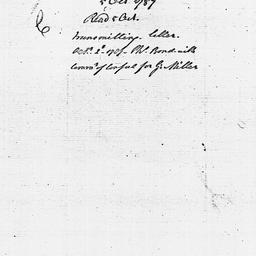 5 Oct 1787
Read 5 Oct.
transmitting letter.
Octr. 2d 1787. Phs. Bond with
Commn of Consul for G. Miller